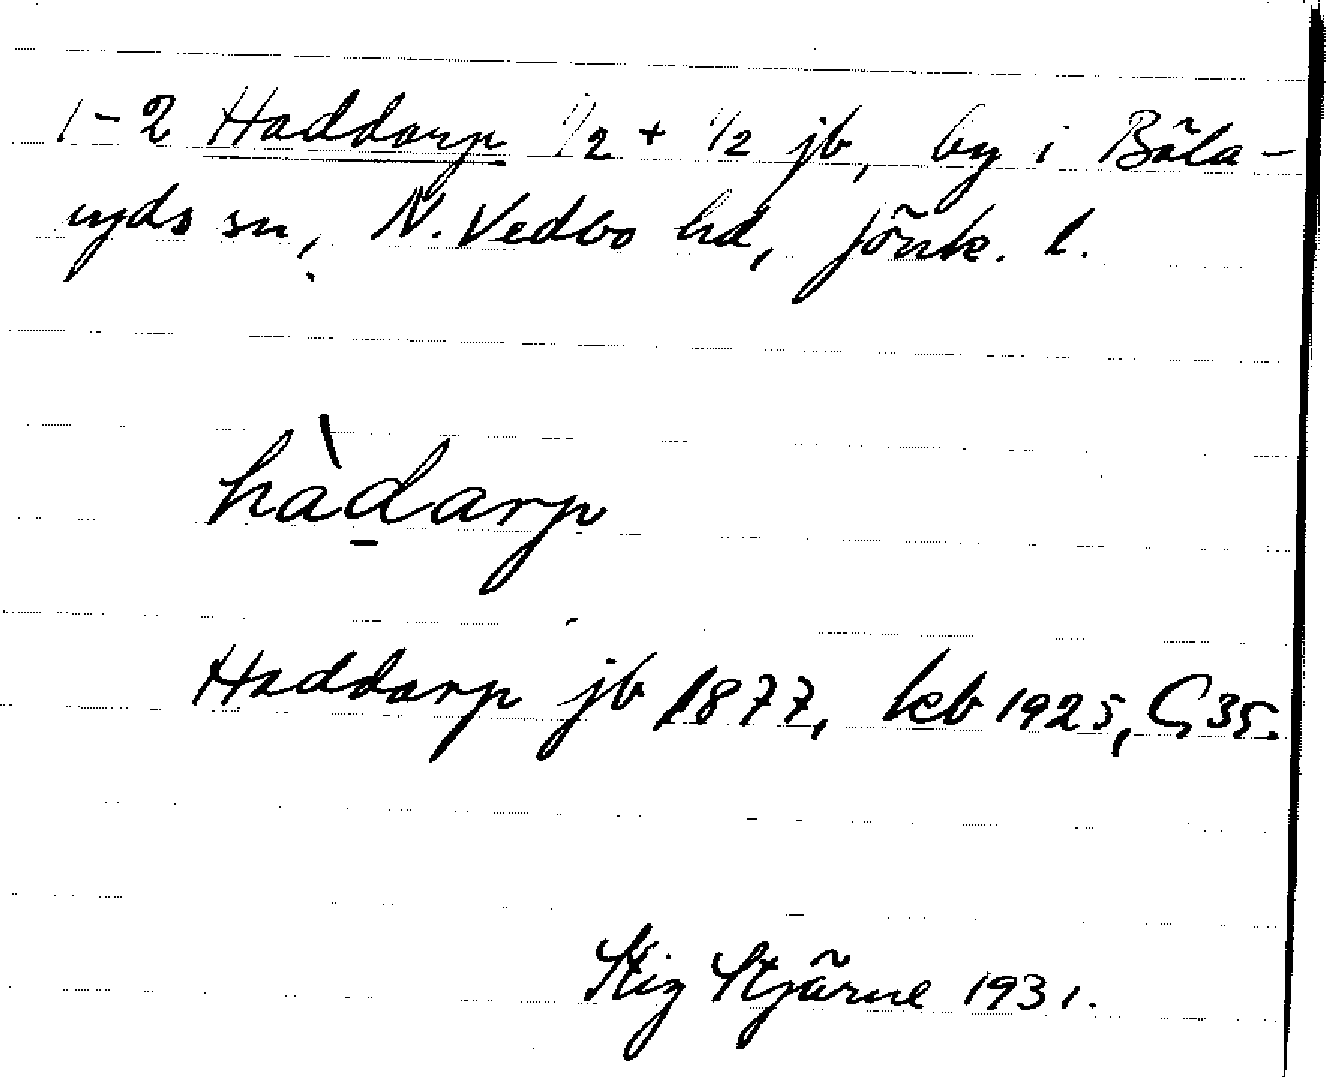 1-2 Haddarp 1/2 + 1/2 jb, by i Bäla-
ryds sn, N. Vedbo hd, Jönk. l.
hàdarp
Haddarp jb 1877, keb 1925, G 35.
Stig Stjärne 1931.